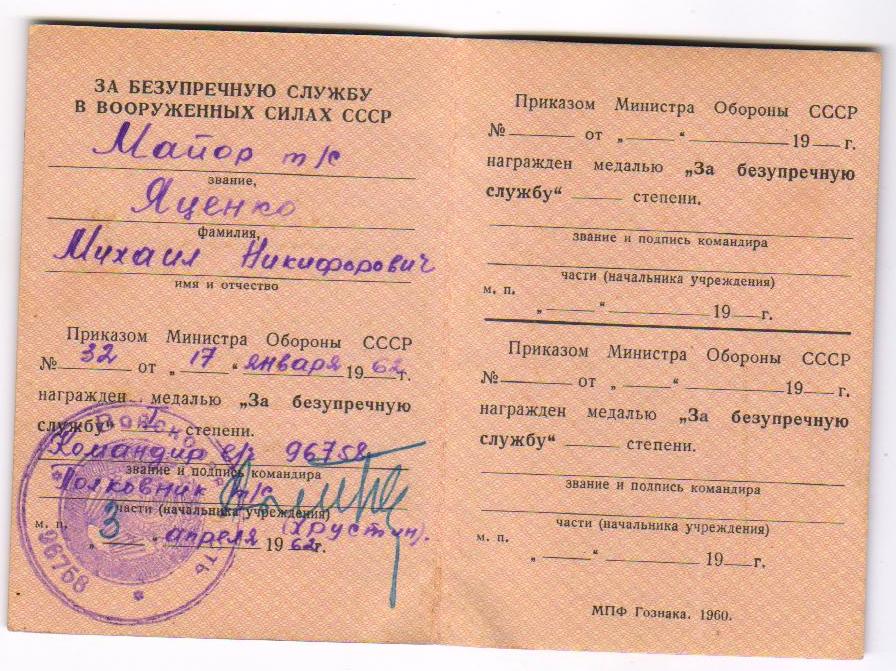 ЗА БЕЗУПРЕЧНУЮ СЛУЖБУ
В ВООРУЖЕННЫХ СИЛАХ СССР
Майор т/с
звание,
Яценко
фамилия,
Михаил Никифорович
имя и отчество
Приказом Министра Обороны СССР
№ 32 от „ 17 “ января 19 62 г.
награжден медалью „За безупречную
службу“ I степени.
Командир в/ч 96758
звание и подпись командира
Полковник т/с
части (начальника учреждения)
(Хрустин).
м. п.
„ 3 “ апреля 19 62 г.
ВОЙСКОВАЯ ЧАСТЬ
96758
Приказом Министра Обороны СССР
№ от „ “ 19 г.
награжден медалью „За безупречную
службу“ степени.
звание и подпись командира
части (начальника учреждения)
м. п.
„ “ 19 г.
Приказом Министра Обороны СССР
№ от „ “ 19 г.
награжден медалью „За безупречную
службу“ степени.
звание и подпись командира
части (начальника учреждения)
м. п.
„ “ 19 г.
МПФ Гознака. 1960.